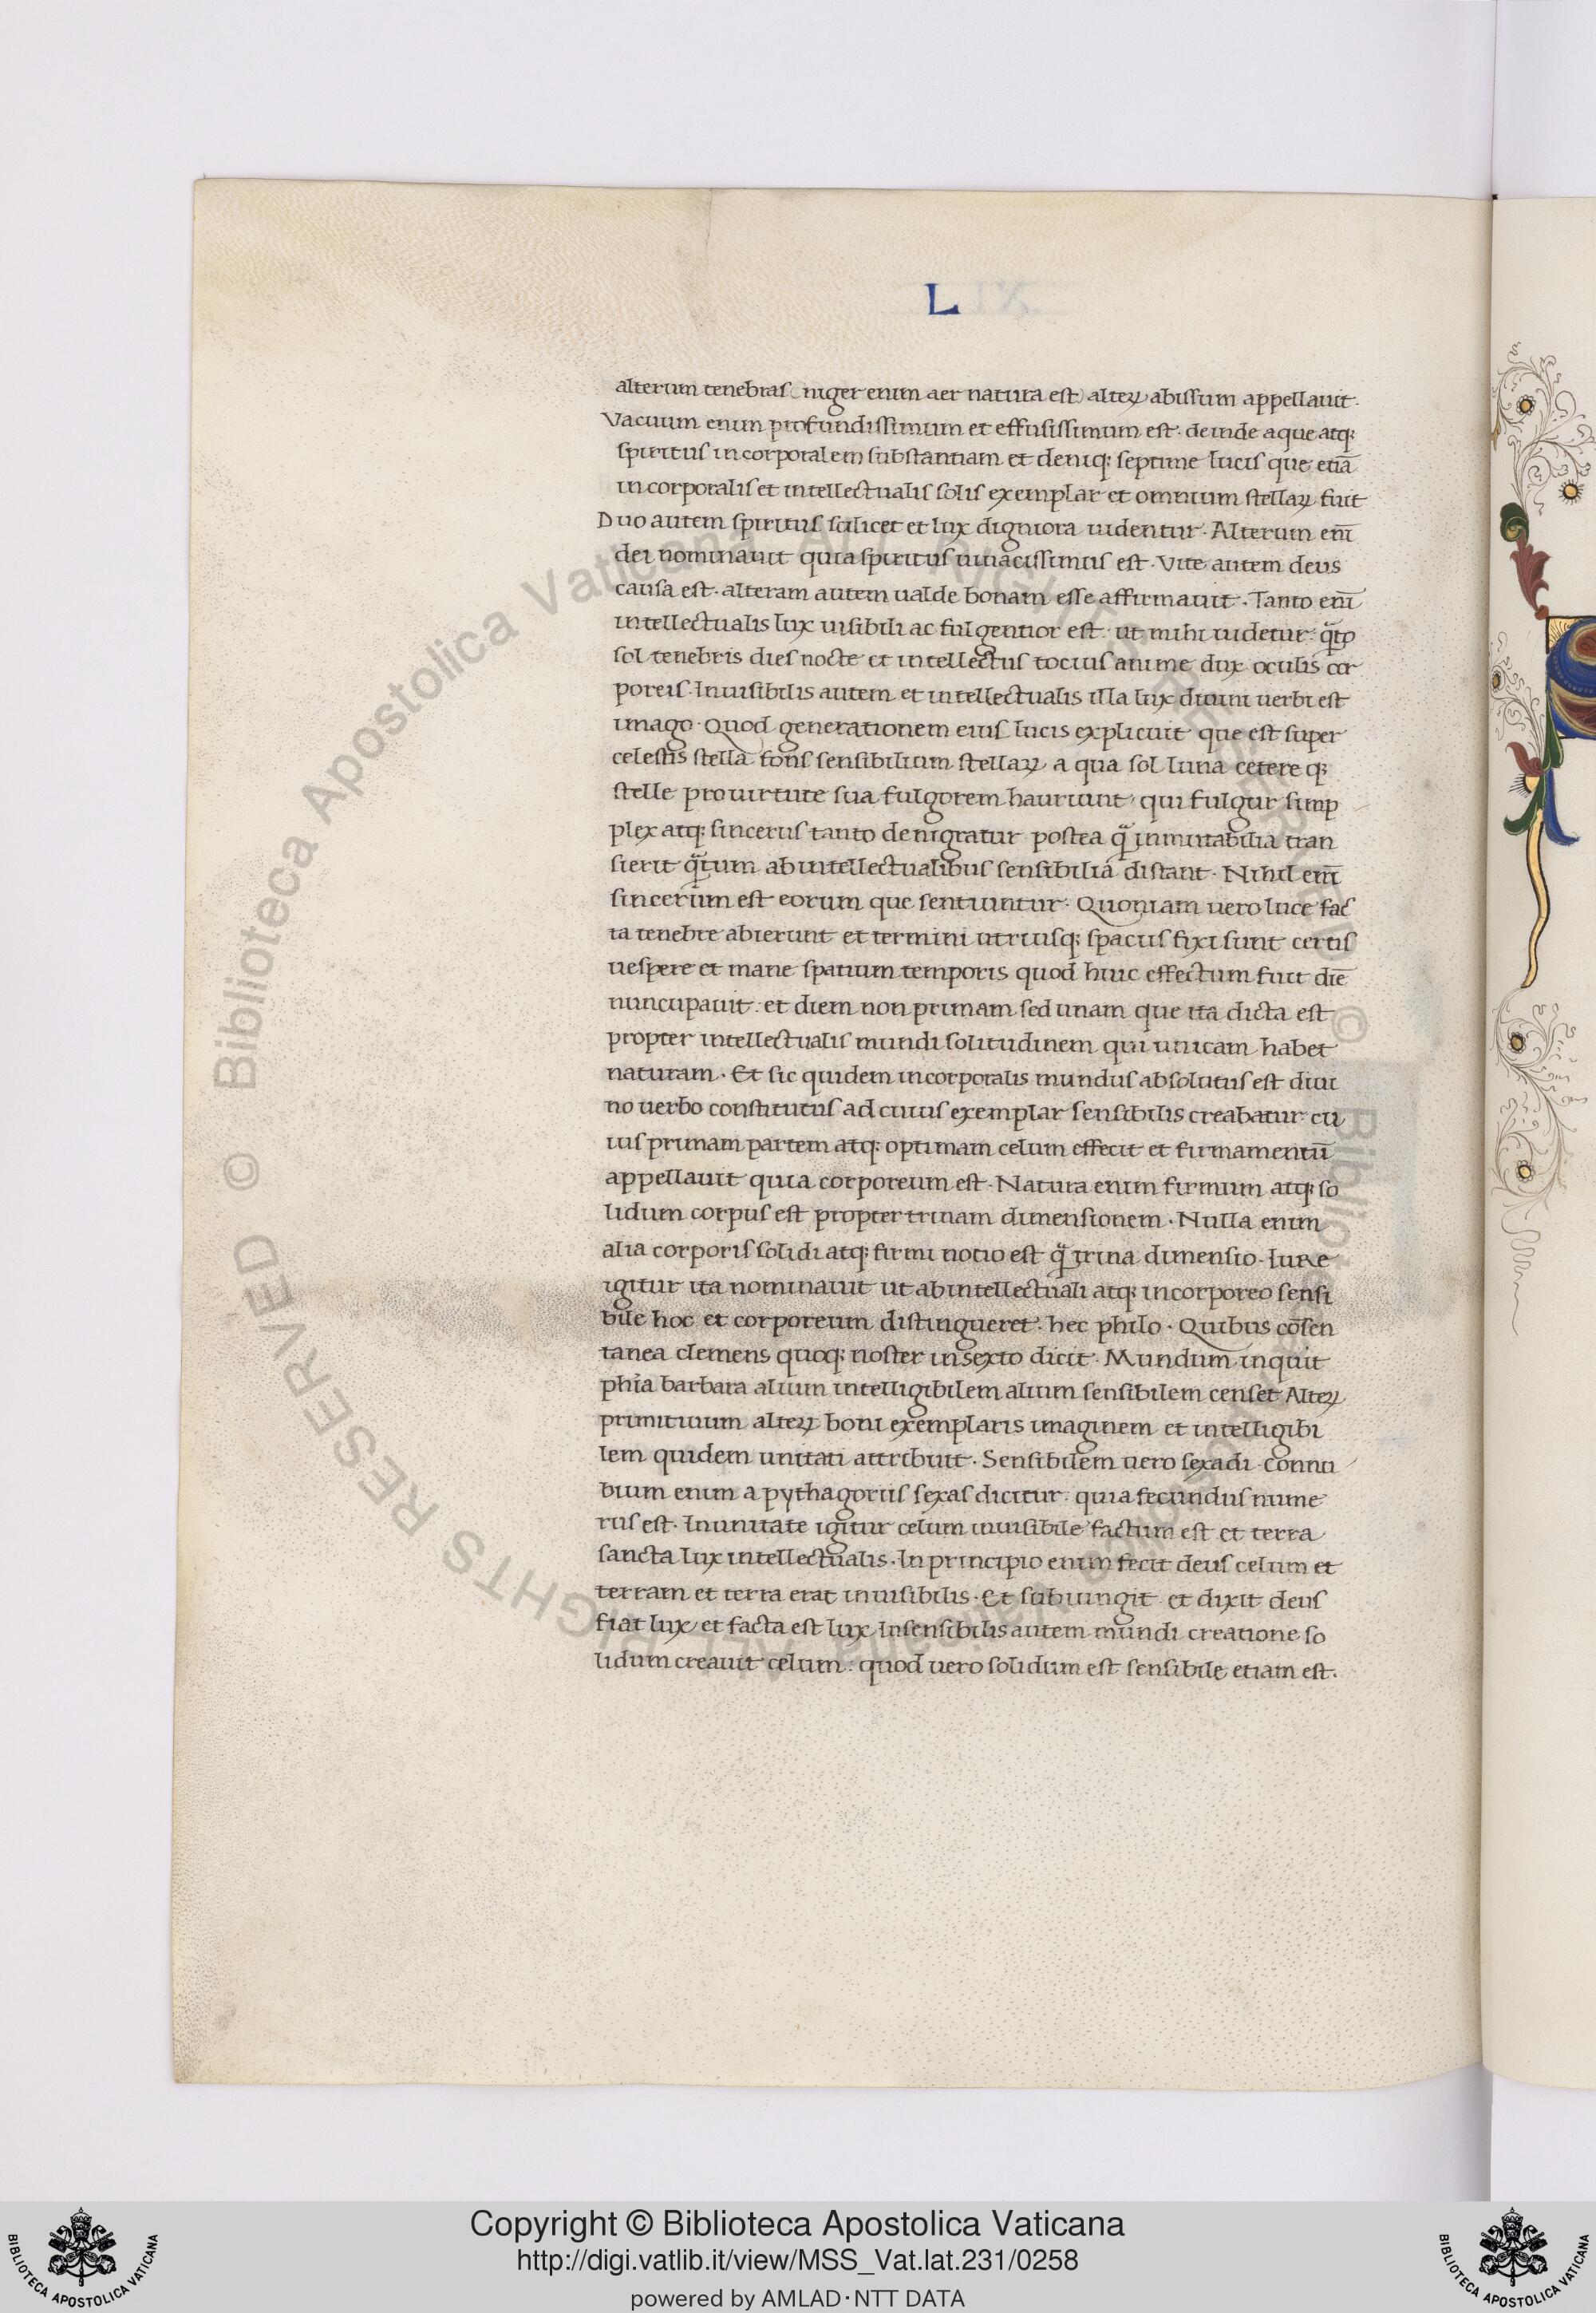 L
alterum tenebras (niger enim aer natura est) alteꝝ abissum appellauit.
Vacuum enim profundissimum et effusissimum est. deinde aque atqꝫ
spiritus incorporalem substantiam et deniqꝫ septime lucis que etiā
incorporalis et intellectualis solis exemplar et omnium stellaꝝ fuit
Duo autem spiritus scilicet et lux digniora uidentur. Alterum enī
dei nominauit quia spiritus uiuacissimus est. Vite autem deus
causa est. alteram autem ualde bonam esse affirmauit. Tanto enī
intellectualis lux uisibili ac fulgentior est. ut mihi uidetur. q̄to
sol tenebris dies nocte et intellectus tocius anime dux oculis cor
poreis. Inuisibilis autem et intellectualis illa lux diuini uerbi est
imago. Quod generationem eius lucis explicuit que est super
celestis stella fons sensibilium stellaꝝ a qua sol luna cetere qꝫ
stelle pro uirtute sua fulgorem hauriunt. qui fulgur simp
plex atqꝫ sincerus tanto denigratur postea q̄ inmutabilia tran
sierit q̄tum ab intellectualibus sensibilia distant. Nihil enī
sincerum est eorum que sentiuntur. Quoniam uero luce fac
ta tenebre abierunt et termini utriusqꝫ spaciis fixi sunt certis
uespere et mane spatium temporis quod hinc effectum fuit diē
nuncupauit. et diem non primam sed unam que ita dicta est
propter intellectualis mundi solitudinem qui unicam habet
naturam. Et sic quidem incorporalis mundus absolutus est diui
no uerbo constitutus ad cuius exemplar sensibilis creabatur. cu
ius primam partem atqꝫ optimam celum effecit et firmamentū
appellauit quia corporeum est. Natura enim firmum atqꝫ so
lidum corpus est propter trinam dimensionem. Nulla enim
alia corporis solidi atqꝫ firmi notio est q̄ trina dimensio. Iure
igitur ita nominauit ut ab intellectuali atqꝫ incorporeo sensi
bile hoc et corporeum distingueret. hec philo. Quibus cōsen
tanea clemens quoqꝫ noster in sexto dicit. Mundum inquit
phia barbara alium intelligibilem alium sensibilem censet Alteꝝ
primitiuum alteꝝ boni exemplaris imaginem et intelligibi
lem quidem unitati attribuit. Sensibilem uero sexadi connu
bium enim a pythagoriis sexas dicitur. quia fecundus nume
rus est. In unitate igitur celum inuisibile factum est et terra
sancta lux intellectualis. In principio enim fecit deus celum et
terram et terra erat inuisibilis. Et subiungit et dixit deus
fiat lux et facta est lux. In sensibilis autem mundi creatione so
lidum creauit celum. quod uero solidum est sensibile etiam est.
© Biblioteca Apostolica Vaticana ALL RIGHTS RESERVED © Biblioteca Apostolica Vaticana ALL RIGHTS RESERVED
Copyright © Biblioteca Apostolica Vaticana
http://digi.vatlib.it/view/MSS_Vat.lat.231/0258
powered by AMLAD·NTT DATA
BIBLIOTECA APOSTOLICA VATICANA
BIBLIOTECA APOSTOLICA VATICANA